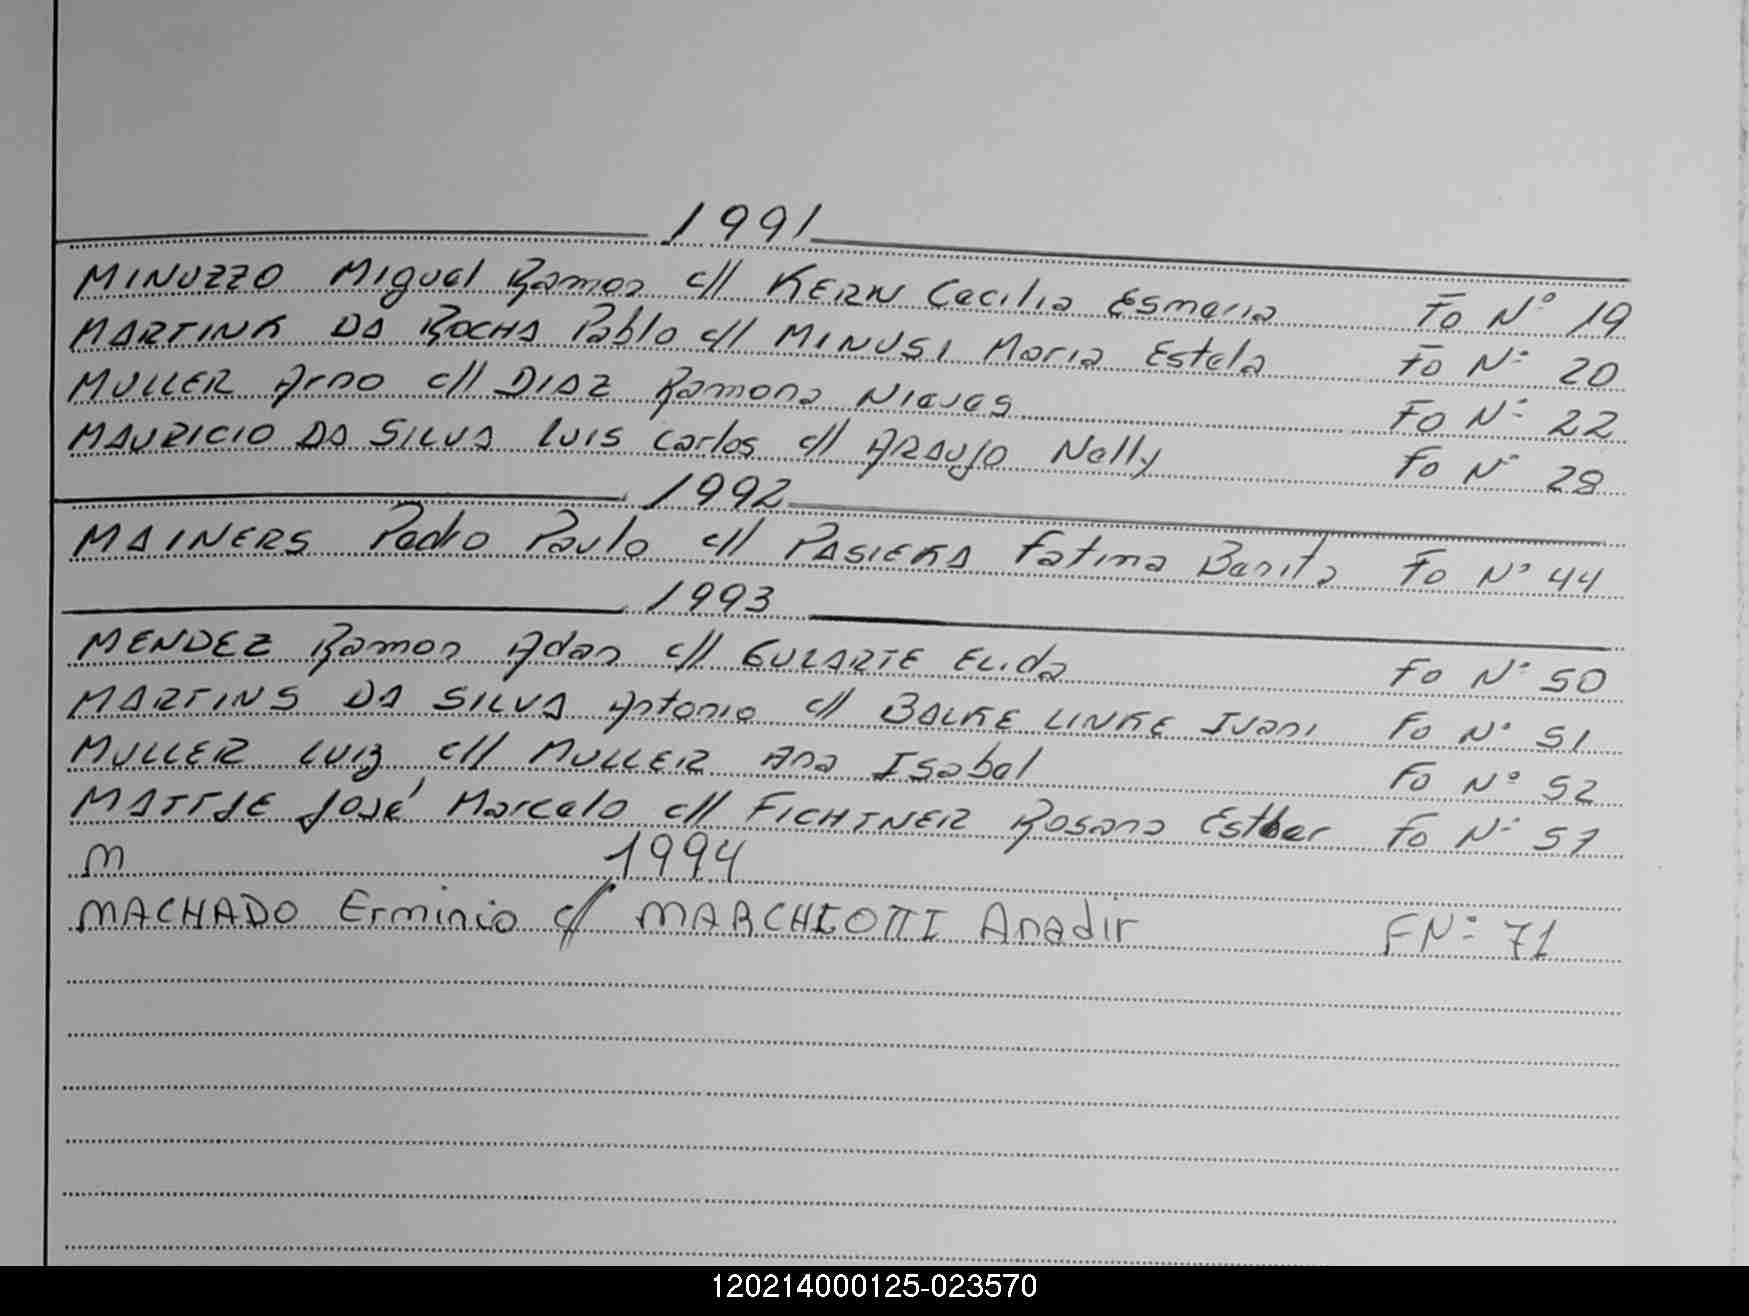 1991
MINUZZO Miguel Ramon c// KERN Cecilia Esmeria Fo N° 19
MARTINK DA ROCHA Pablo c// MINUSI Maria Estela Fo N° 20
MULLER Arno c// DIAZ Ramona Nieves Fo N° 22
MAURICIO DA SILVA Luis Carlos c// ARAUJO Nelly Fo N° 28
1992
MAINERS Pedro Paulo c// PASIEKA Fatima Benita Fo N° 44
1993
MENDEZ Ramon Adan c// GULARTE Elida Fo N° 50
MARTINS DA SILVA Antonio c// BALKE LINKE Ivani Fo N° 51
MULLER Luiz c// MULLER Ana Isabel Fo N° 52
MATTJE José Marcelo c// FICHTNER Rosana Esther Fo N° 57
M 1994
MACHADO Erminio c/ MARCHIOTTI Anadir F N° 71
120214000125-023570